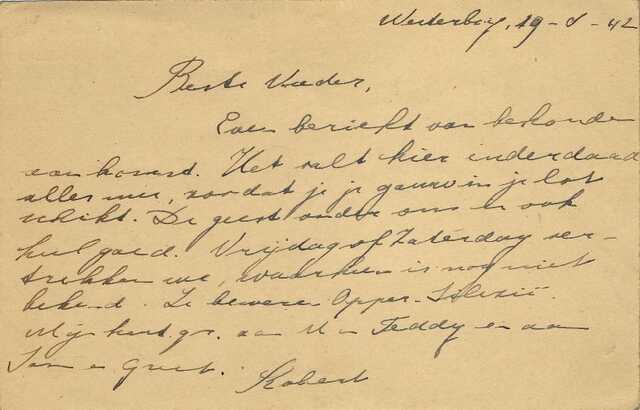 Westerbork, 19-8-42
Beste Moeder,
Even bericht van behouden
aankomst. Het valt hier inderdaad
alles mee, zoodat je je gauw in je lot
schikt. De geest onder ons is ook
heel goed. Vrijdag of Zaterdag ver-
trekken we, waarheen is nog niet
bekend. Ze beweren Opper-Silezië.
Mijn hart. gr. aan U en Teddy en aan
Jan en Greet.
Robert